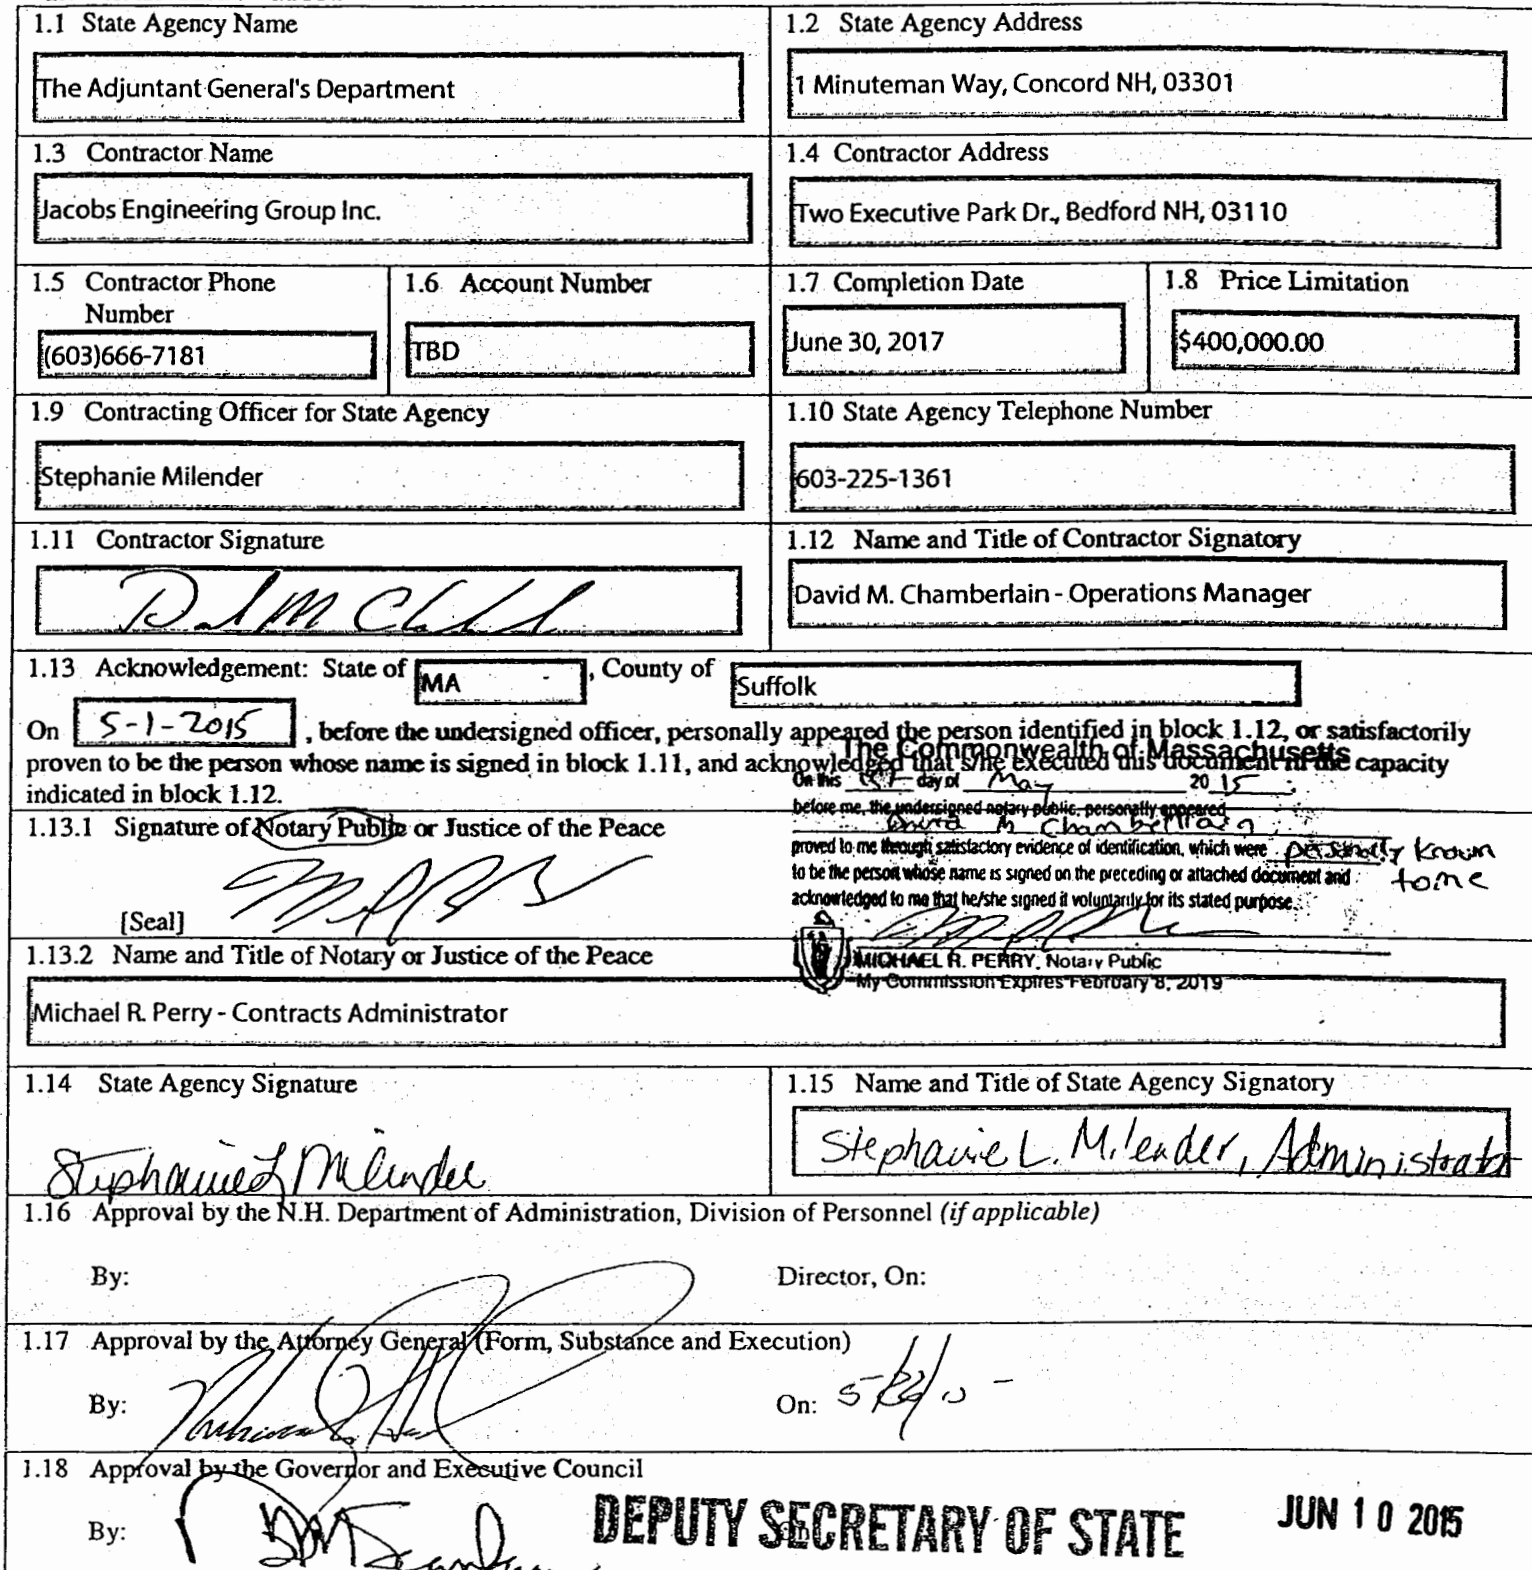 1.1 State Agency Name
The Adjuntant General's Department
1.2 State Agency Address
1 Minuteman Way, Concord NH, 03301
1.3 Contractor Name
Jacobs Engineering Group Inc.
1.4 Contractor Address
Two Executive Park Dr., Bedford NH, 03110
1.5 Contractor Phone
Number
(603)666-7181
1.6 Account Number
TBD
1.7 Completion Date
June 30, 2017
1.8 Price Limitation
$400,000.00
1.9 Contracting Officer for State Agency
Stephanie Milender
1.10 State Agency Telephone Number
603-225-1361
1.11 Contractor Signature
1.12 Name and Title of Contractor Signatory
David M. Chamberlain - Operations Manager
1.13 Acknowledgement: State of MA , County of Suffolk
On 5-1-2015 , before the undersigned officer, personally appeared the person identified in block 1.12, or satisfactorily
proven to be the person whose name is signed in block 1.11, and acknowledged that s/he executed this document in the capacity
indicated in block 1.12.
The Commonwealth of Massachusetts
On this 1st day of May 20 15
before me, the undersigned notary public, personally appeared
David M Chamberlain,
proved to me through satisfactory evidence of identification, which were personally known
to be the person whose name is signed on the preceding or attached document and to me
acknowledged to me that he/she signed it voluntarily for its stated purpose.
MICHAEL R. PERRY, Notary Public
My Commission Expires February 8, 2019
1.13.1 Signature of Notary Public or Justice of the Peace
[Seal]
1.13.2 Name and Title of Notary or Justice of the Peace
Michael R. Perry - Contracts Administrator
1.14 State Agency Signature
Stephanie L Milender
1.15 Name and Title of State Agency Signatory
Stephanie L. Milender, Administrator
1.16 Approval by the N.H. Department of Administration, Division of Personnel (if applicable)
By: Director, On:
1.17 Approval by the Attorney General (Form, Substance and Execution)
By: On:
1.18 Approval by the Governor and Executive Council
By: DEPUTY SECRETARY OF STATE On: JUN 10 2015